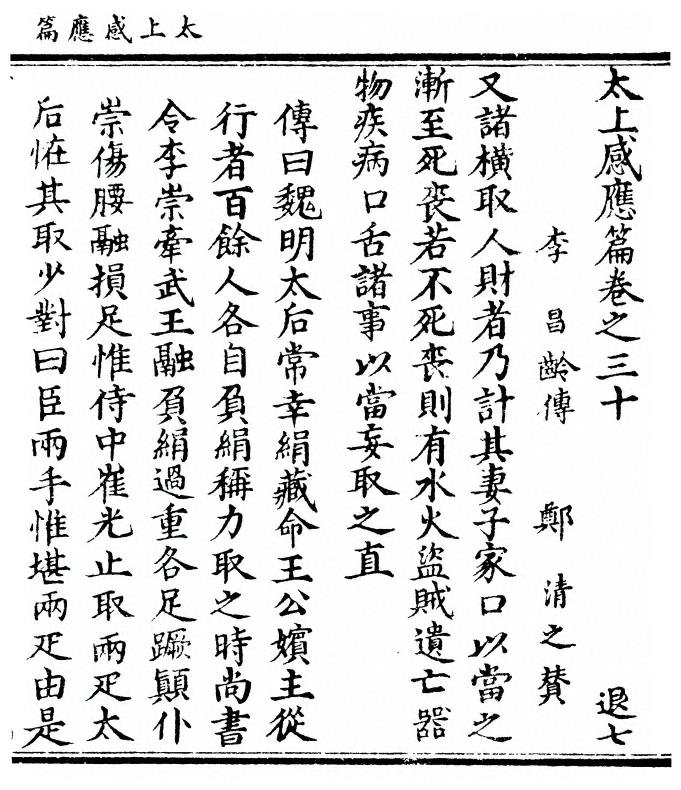 太上感應篇
太上感應篇卷之三十 退七
李昌齡傳 鄭清之贊
又諸橫取人財者乃計其妻子家口以當之
漸至死喪若不死喪則有水火盜賊遺亡器
物疾病口舌諸事以當妄取之直
傳曰魏明太后常幸絹藏命王公嬪主從
行者百餘人各自負絹稱力取之時尚書
令李崇牽武王融負絹過重各足蹶顛仆
崇傷腰融損足惟侍中崔光止取兩疋太
后恠其取少對曰臣兩手惟堪兩疋由是